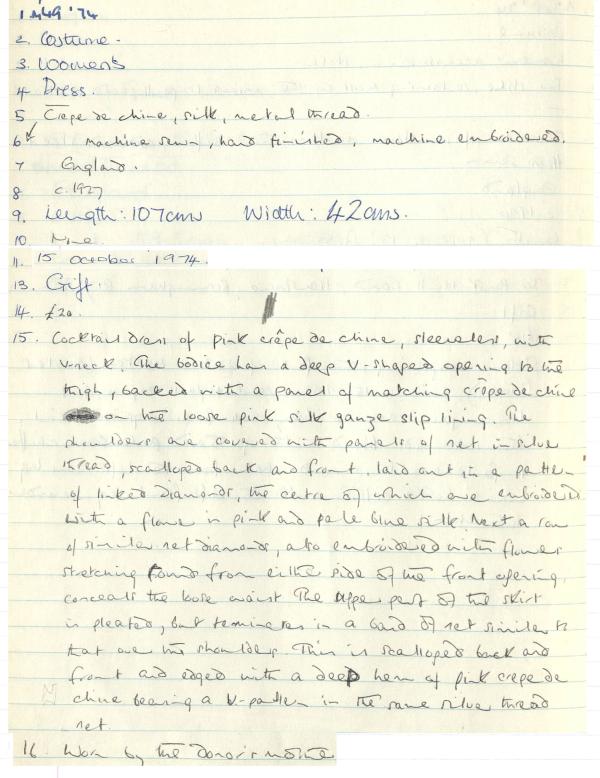 1 A449 '74
2. Costume.
3. Women's
4 Dress.
5 Crêpe de chine, silk, metal thread.
6 machine sewn, hand finished, machine embroidered.
7 England.
8 c. 1927
9. Length: 107cms Width: 42cms.
10. None
11. 15 October 1974.
13. Gift
14. £20.
15. Cocktail dress of pink crêpe de chine, sleeveless, with
V-neck. The bodice has a deep V-shaped opening to the
thigh, backed with a panel of matching crêpe de chine
on the loose pink silk gauze slip lining. The
shoulders are covered with panels of net in silver
thread, scalloped back and front, laid out in a pattern
of linked diamonds, the centre of which are embroidered
with a flower in pink and pale blue silk. Next a row
of similar net diamonds, also embroidered with flowers
stretching round from either side of the front opening,
conceals the loose waist The upper part of the skirt
is pleated, but terminates in a band of net similar to
that over the shoulders. This is scalloped back and
front and edged with a deep hem of pink crepe de
chine bearing a V-pattern in the same silver thread
net.
16. Worn by the donor's mother